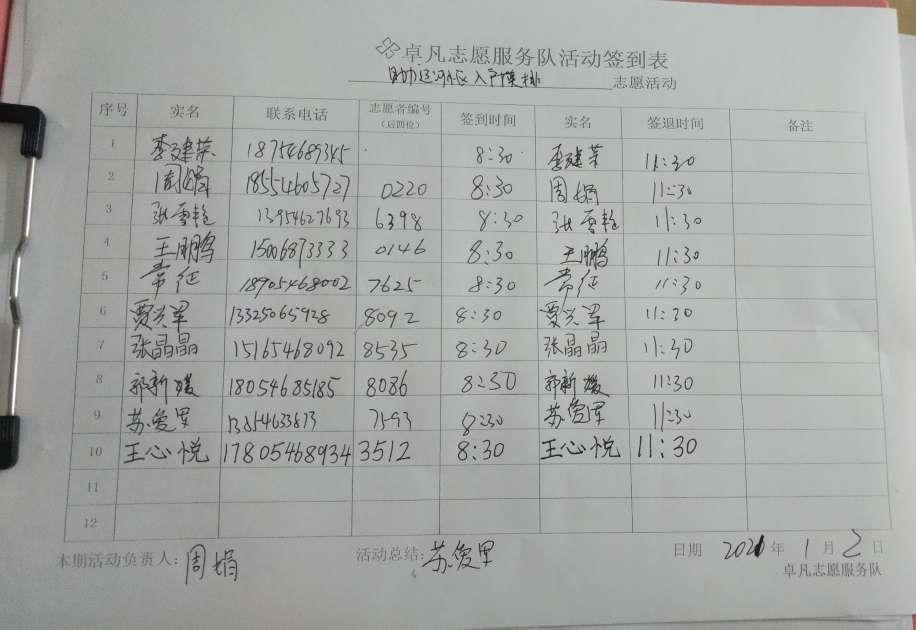 卓凡志愿服务队活动签到表
入户摸排 志愿活动
序号 实名 联系电话 志愿者编号（后四位） 签到时间 实名 签退时间 备注
1 李建荣 18754689345 8:30 李建荣 11:30
2 周娟 18554605727 0220 8:30 周娟 11:30
3 张雪艳 13954627693 6398 8:30 张雪艳 11:30
4 王鹏 15006873333 0146 8:30 王鹏 11:30
5 常征 18905468002 7625 8:30 常征 11:30
6 贾 军 13325065928 8092 8:30 贾 军 11:30
7 张晶晶 15165468092 8535 8:30 张晶晶 11:30
8 郭新媛 18054685185 8086 8:30 郭新媛 11:30
9 苏俊 7593 8:30 苏俊 11:30
10 王心悦 17805468934 3512 8:30 王心悦 11:30
11
12
本期活动负责人：周娟 活动总结：苏俊 日期 2021年1月2日
卓凡志愿服务队